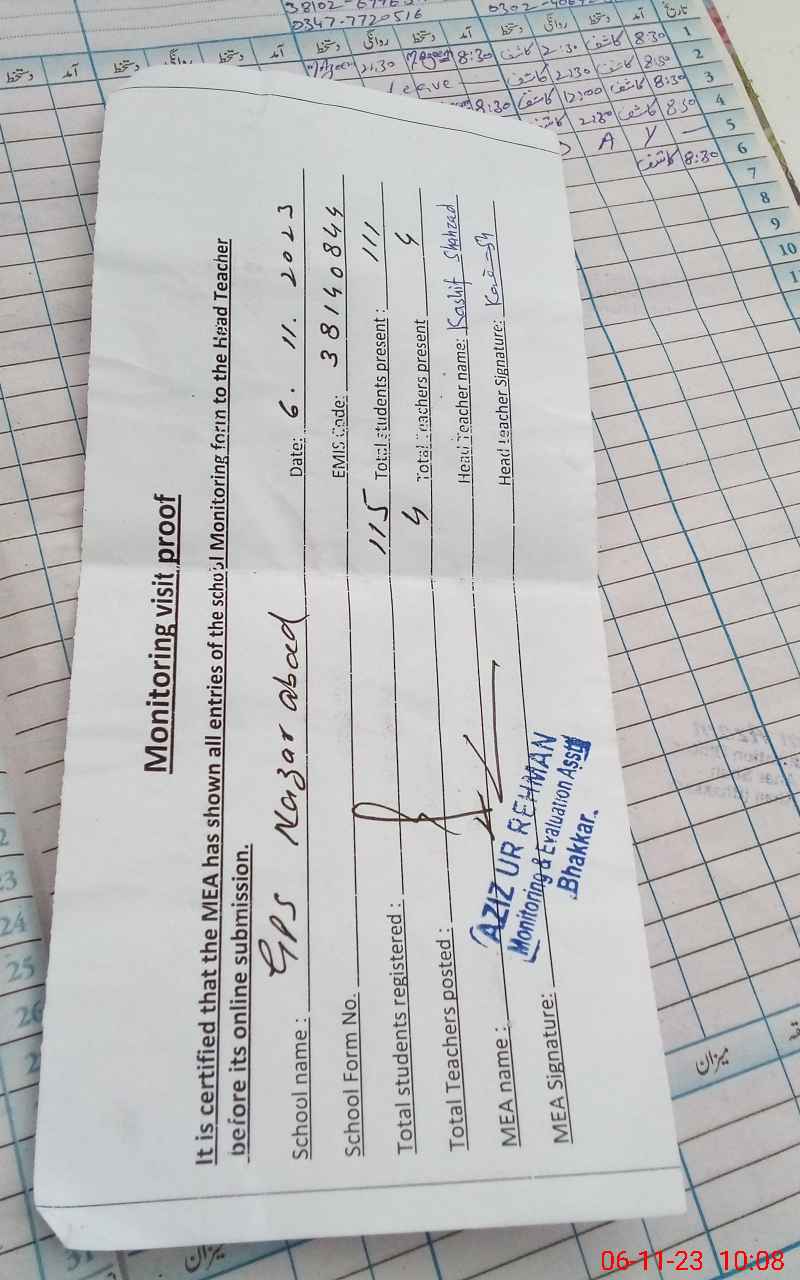 Monitoring visit proof
It is certified that the MEA has shown all entries of the school Monitoring form to the Head Teacher
before its online submission.
School name : GPS Nazar abad Date: 6. 11. 2023
School Form No. EMIS Code: 38140844
Total students registered : 115 Total students present : 111
Total Teachers posted : 4 Total Teachers present 4
MEA name : Head Teacher name: Kashif Shahzad
AZIZ UR REHMAN
Monitoring & Evaluation Asstt
Bhakkar.
MEA Signature: Head Teacher Signature:
0347-7720516
تاریخ آمد دستخط روانگی دستخط آمد دستخط روانگی دستخط آمد
1 8:30 کاشف 2:30 کاشف 8:30
2 8:30 کاشف 2:30 کاشف Leave
3 8:30 کاشف 12:00 کاشف 8:30
4 8:30 کاشف 2:30 کاشف
5 A Y
6 8:30 کاشف
7
8
9
10
24
25
26
میزان
میزان
06-11-23 10:08